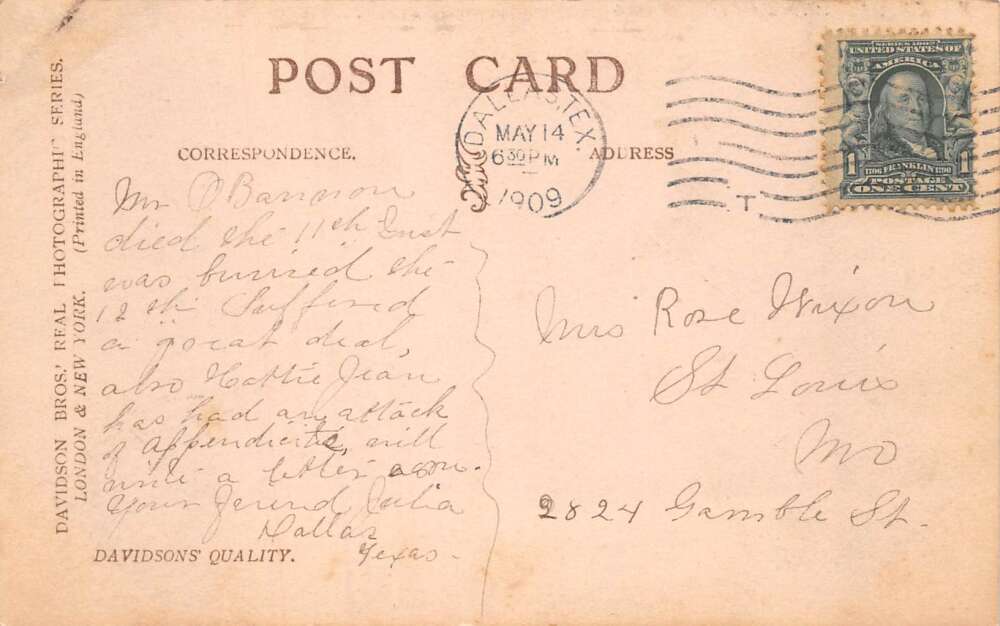 DAVIDSON BROS.' REAL PHOTOGRAPHIC SERIES.
LONDON & NEW YORK. (Printed in England)
POST CARD
CORRESPONDENCE.
ADDRESS
DALLAS, TEX.
MAY 14
6 30 PM
1909
T
SERIES 1902
UNITED STATES OF
AMERICA
1 1706 FRANKLIN 1790 1
POSTAGE
ONE CENT
Mr O'Bannon
died the 11th Inst
was burried the
12th Suffered
a great deal,
also Hattie Jean
has had an attack
of appendicitis, will
write a letter soon.
Your Freind Julia
Dallas
Texas-
Mrs Rose Nixon
St Louis
Mo
2824 Gamble St.
DAVIDSONS' QUALITY.